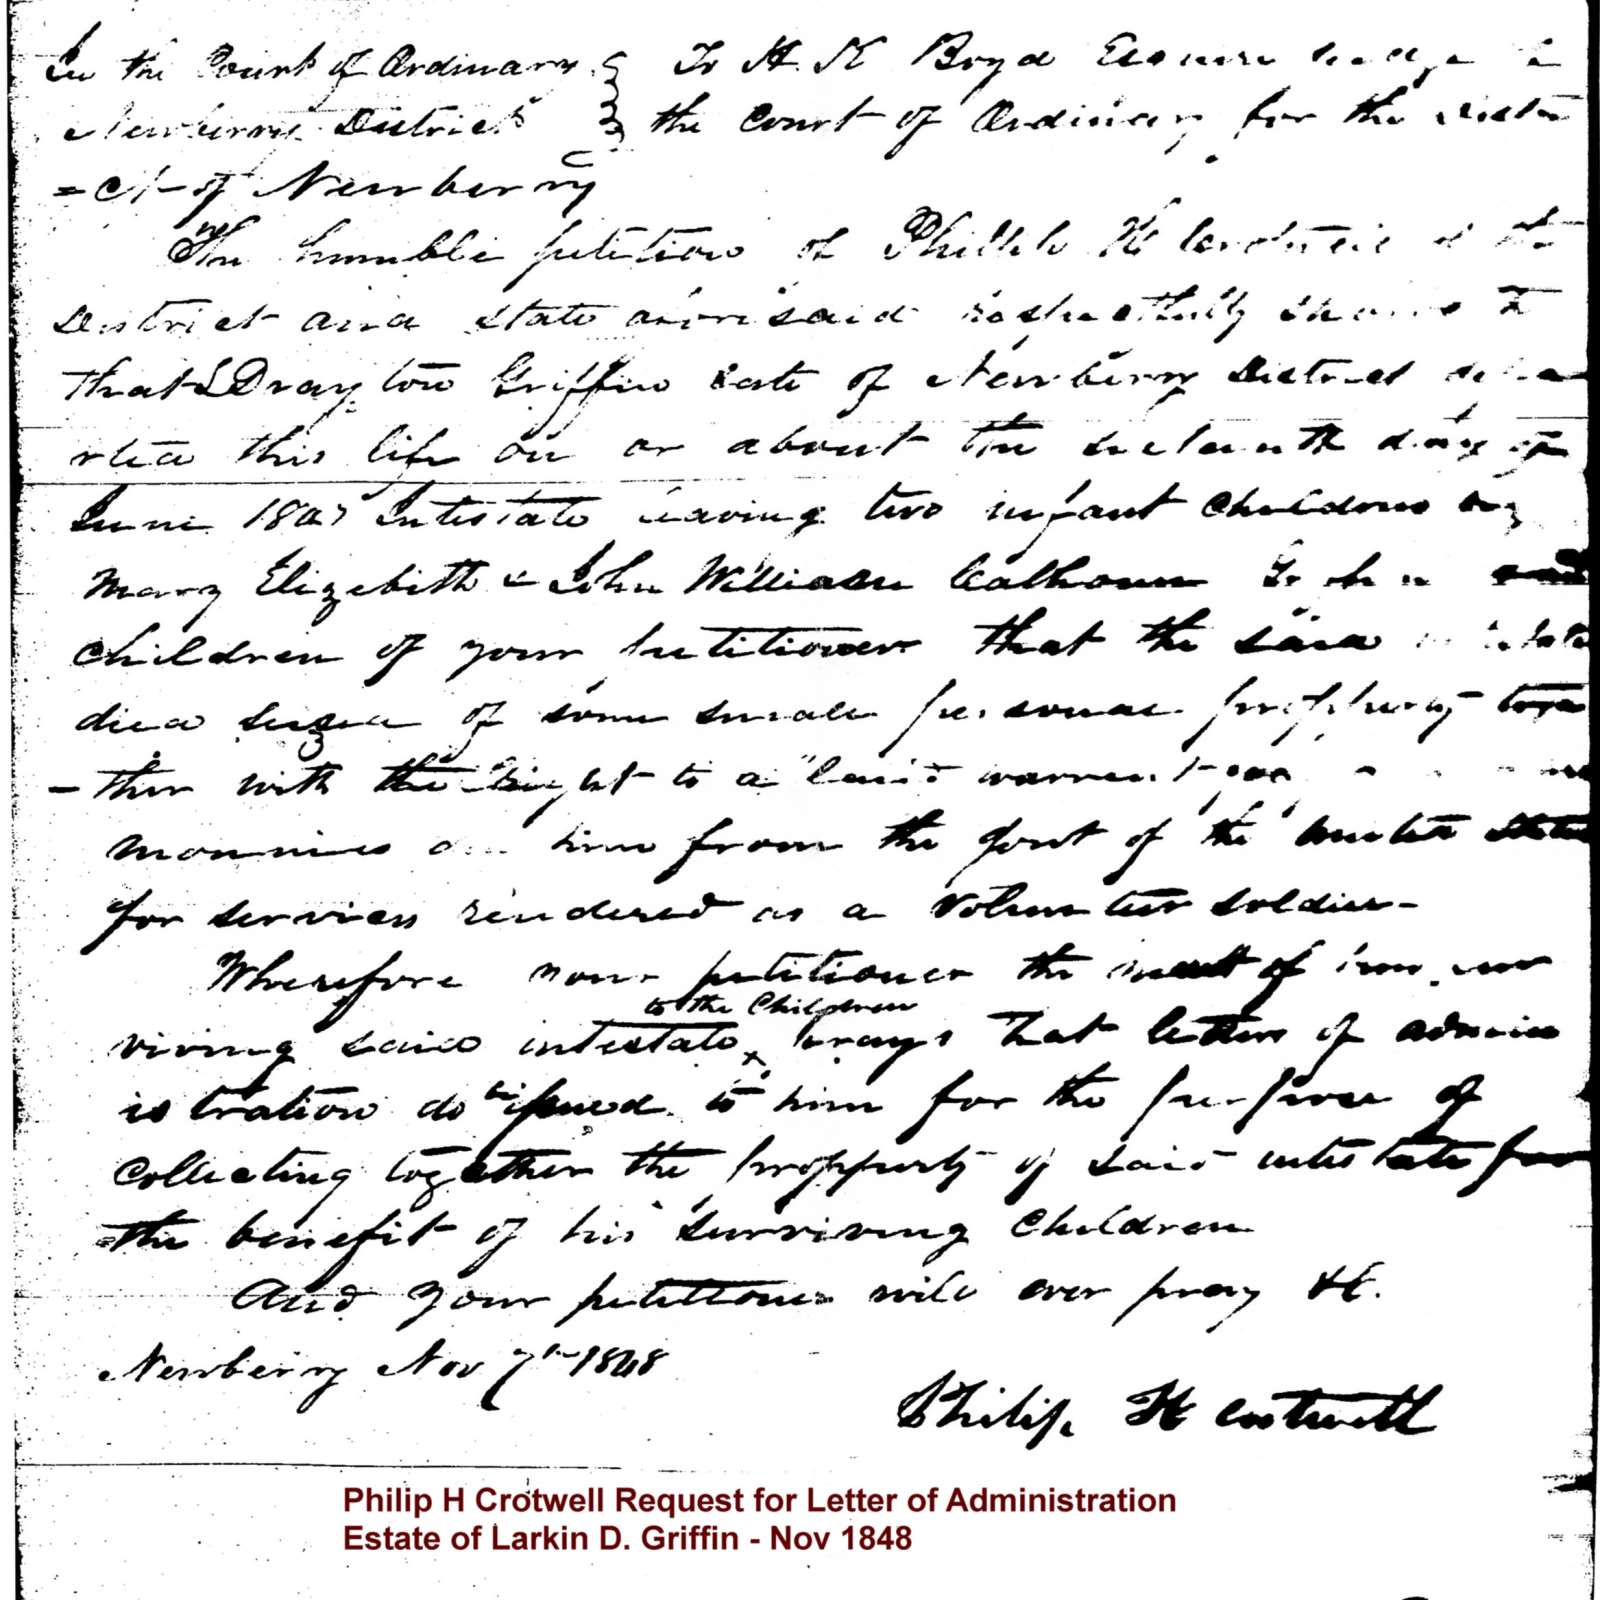 In the Court of Ordinary To H. K Boyd Esquire
Newberry District the Court of Ordinary for the Distri
= ct of Newberry
The humble petition of Phillip H of the
District and State aforesaid respectfully
that L Drayton Griffin late of Newberry District depa
rted this life on or about the day of
June Intestate leaving two infant children
Mary Elizabeth & John William Calhoun
children of your petitioner that the said intestate
died seized of some small personal propperty toge
- ther with the right to a land warrent
monnies him from the govt of the United States
for services rendered as a volunteer soldier -
Wherefore your petitioner the next of
to the Children
viving said intestate prays that letters of admin
istration do be issued to him for the purpose of
collecting together the propperty of said intestate for
the benefit of his surviving children
And your petitioner will ever pray &c.
Newberry Nov 7th 1848
Philip H Crotwell
Philip H Crotwell Request for Letter of Administration
Estate of Larkin D. Griffin - Nov 1848